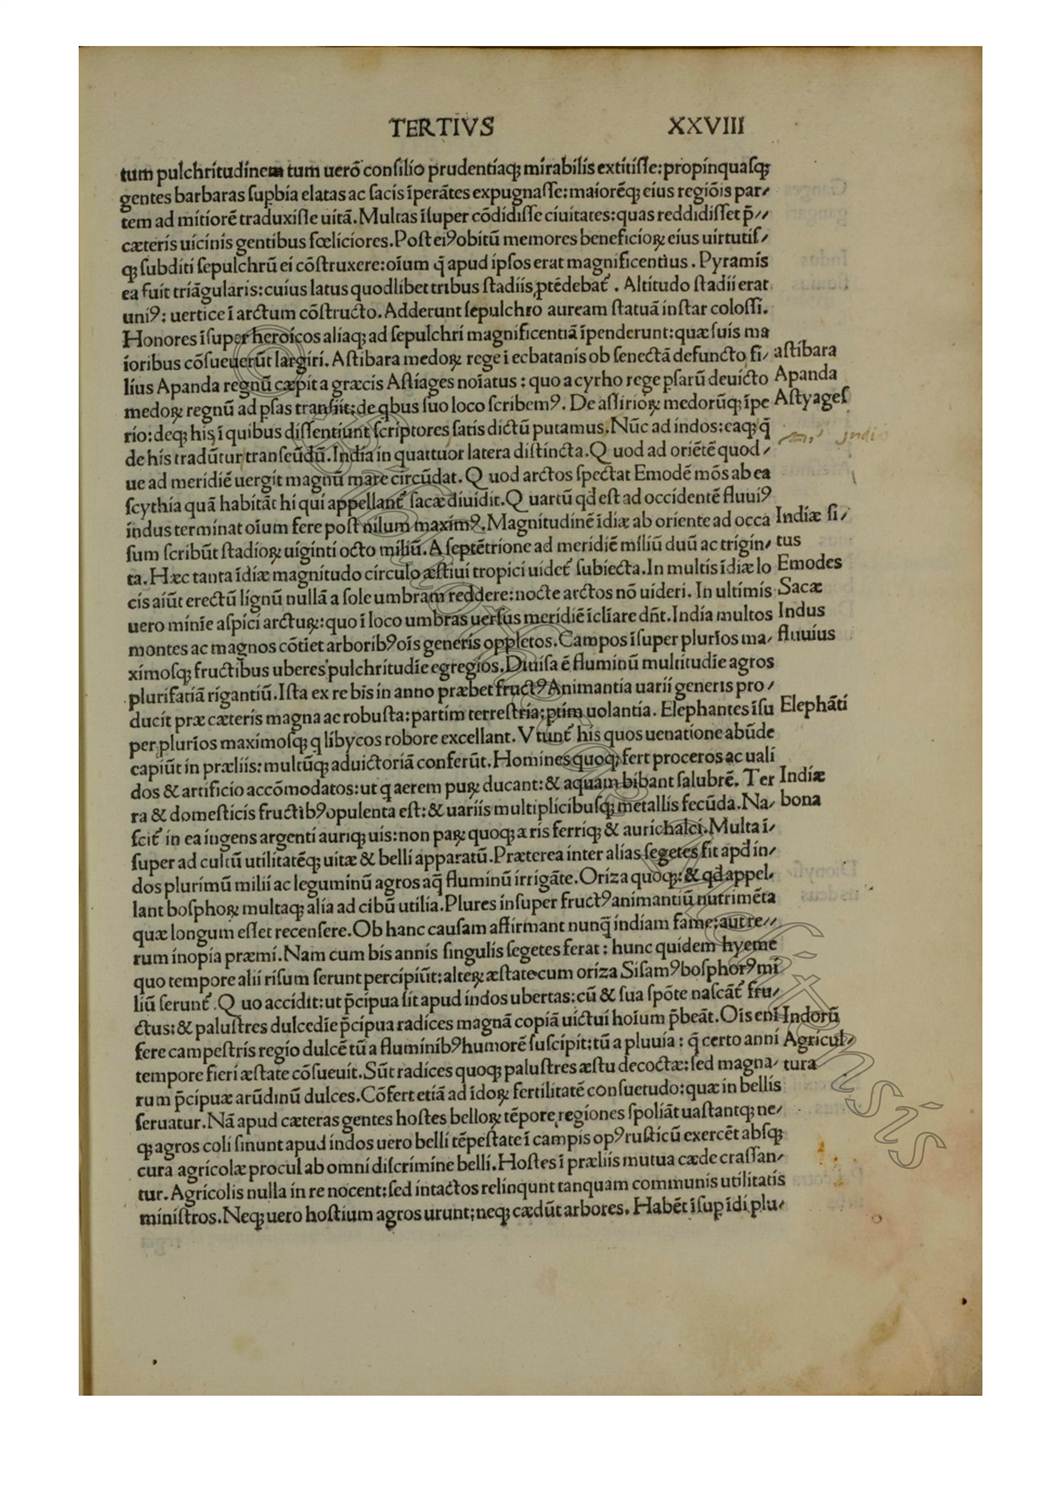 TERTIVS XXVIII
tum pulchritudinem tum uero cõsilio prudentiaqꝫ mirabilis extitisse: propinquasqꝫ
gentes barbaras supbia elatas ac sacis ĩperãtes expugnasse: maiorẽqꝫ eius regiõis par/
tem ad mitiorẽ traduxisse uitã. Multas ĩsuper cõdidisse ciuitates: quas reddidisset p̃//
cæteris uicinis gentibus fœliciores. Post eiꝰ obitũ memores beneficioꝝ eius uirtutis/
qꝫ subditi sepulchrũ ei cõstruxere: oĩum q̃ apud ipsos erat magnificentius. Pyramis
ea fuit triãgularis: cuius latus quodlibet tribus stadiis ptẽdebat̃. Altitudo stadii erat
uniꝰ: uertice ĩ arctum cõstructo. Adderunt sepulchro auream statuã instar colossi.
Honores ĩsuper heroicos aliaqꝫ ad sepulchri magnificentiã ĩpenderunt: quæ suis ma
ioribus cõsueuerũt largiri. Astibara medoꝝ rege ĩ ecbatanis ob senectã defuncto fi/ astibara
lius Apanda regnũ cæpit a græcis Astiages noĩatus: quo a cyrho rege psarũ deuicto Apanda
medoꝝ regnũ ad psas transiit: de qbus suo loco scribemꝰ. De assirioꝝ medorũqꝫ ĩpe Astyages
rio: deqꝫ his ĩ quibus dissentiunt scriptores satis dictũ putamus. Nũc ad indos: eaqꝫ q̃
de his tradũtur transeũdũ. India in quattuor latera distincta. Quod ad oriẽtẽ quod/
ue ad meridiẽ uergit magnũ mare circũdat. Quod arctos spectat Emodẽ mõs ab ea
scythia quã habitãt hi qui appellant̃ sacæ diuidit. Quartũ qd est ad occidentẽ fluuiꝰ
indus terminat oĩum fere post nilum maximꝰ. Magnitudinẽ ĩdiæ ab oriente ad occa Indiæ si/
sum scribũt stadioꝝ uiginti octo miliũ. A septẽtrione ad meridiẽ miliũ duũ ac trigin/ tus
ta. Hæc tanta ĩdiæ magnitudo circulo æstiui tropici uidet̃ subiecta. In multis ĩdiæ lo Emodes
cis aiũt erectũ lignũ nullã a sole umbram reddere: nocte arctos nõ uideri. In ultimis Sacæ
uero minie aspici arctuꝝ: quo ĩ loco umbras uersus meridiẽ ĩcliare dñt. India multos Indus
montes ac magnos cõtiet arboribꝰ oĩs generis oppletos. Campos ĩsuper plurĩos ma/ fluuius
ximosqꝫ fructibus uberes pulchritudĩe egregios. Diuisa ẽ fluminũ multitudĩe agros
plurifariã rigantiũ. Ista ex re bis in anno præbet fructꝰ Animantia uarii generis pro/
ducit præ cæteris magna ac robusta: partim terrestria: ptim uolantia. Elephantes ĩsu Elephãti
per plurĩos maximosqꝫ q libycos robore excellant. Vtunt̃ his quos uenatione abũde
capiũt in præliis: multũqꝫ ad uictoriã conferũt. Homines quoqꝫ fert proceros ac uali
dos & artificio accõmodatos: ut q aerem puꝝ ducant: & aquam bibant salubrẽ. Ter Indiæ
ra & domesticis fructibꝰ opulenta est: & uariis multiplicibusqꝫ metallis fecũda. Na/ bona
scit̃ in ea ingens argenti auriqꝫ uis: non paꝝ quoqꝫ æris ferriqꝫ & aurichalci. Multa ĩ/
super ad cultũ utilitatẽqꝫ uitæ & belli apparatũ. Præterea inter alias segetes fit apd in/
dos plurimũ milii ac leguminũ agros aq̃ fluminũ irrigãte. Oriza quoqꝫ: & qd appel/
lant bosphoꝝ multaqꝫ alia ad cibũ utilia. Plures insuper fructꝰ animantiũ nutrimẽta
quæ longum esset recensere. Ob hanc causam affirmant nunq̃ indiam fame: aut re//
rum inopia præmi. Nam cum bis annis singulis segetes ferat: hunc quidem hyeme
quo tempore alii risum serunt percipiũt: alteꝝ æstate cum oriza Sisamꝰ bosphorꝰ mi
liũ serunt̃. Quo accidit: ut p̃cipua sit apud indos ubertas: cũ & sua spõte nascãt̃ fru/
ctus: & palustres dulcedĩe p̃cipua radices magnã copiã uictui hoĩum p̃beãt. Oĩs eni Indorũ
fere campestris regio dulcẽ tũ a fluminibꝰ humorẽ suscipit: tũ a pluuia: q̃ certo anni Agricul/
tempore fieri æstate cõsueuit. Sũt radices quoqꝫ palustres æstu decoctæ: sed magna/ tura
rum p̃cipuæ arũdinũ dulces. Cõfert etiã ad ĩdoꝝ fertilitatẽ consuetudo: quæ in bellis
seruatur. Nã apud cæteras gentes hostes belloꝝ tẽpore regiones spoliãt uastantqꝫ ne/
qꝫ agros coli sinunt apud indos uero belli tẽpestate ĩ campis opꝰ rusticũ exercẽt absqꝫ
cura agricolæ procul ab omni discrimine belli. Hostes ĩ præliis mutua cæde crassan/
tur. Agricolis nulla in re nocent: sed intactos relinqunt tanquam communis utilitatis
ministros. Neqꝫ uero hostium agros urunt: neqꝫ cædũt arbores. Habẽt ĩsup ĩdi plu/